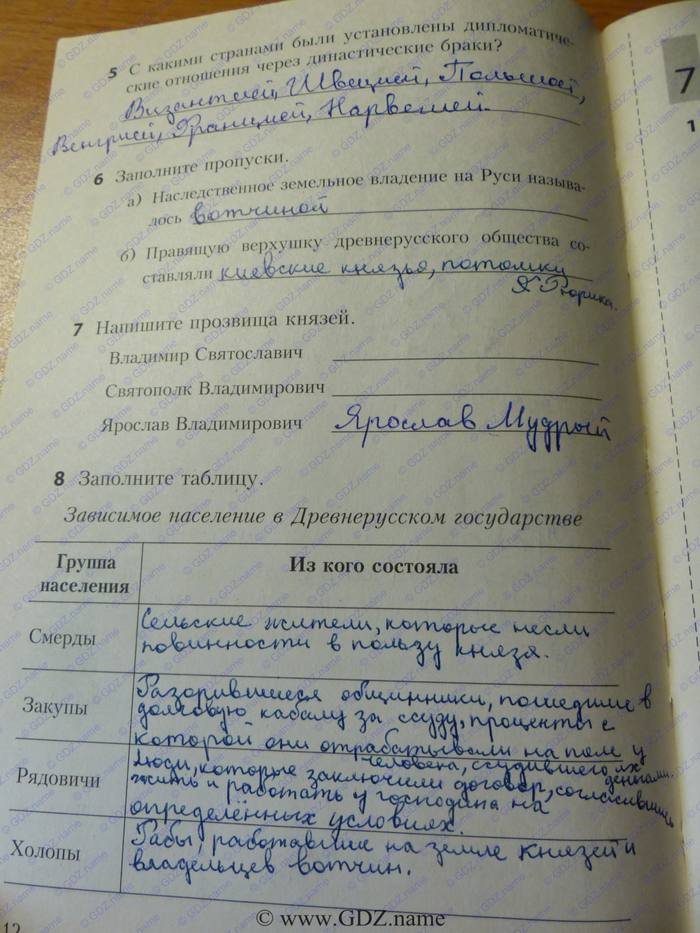 5 С какими странами были установлены дипломатиче-
ские отношения через династические браки?
Византией, Швецией, Польшей,
Венгрией, Францией, Норвегией.
6 Заполните пропуски.
а) Наследственное земельное владение на Руси называ-
лось вотчиной
б) Правящую верхушку древнерусского общества со-
ставляли киевские князья, потомки
Рюрика.
7 Напишите прозвища князей.
Владимир Святославич
Святополк Владимирович
Ярослав Владимирович Ярослав Мудрый
8 Заполните таблицу.
Зависимое население в Древнерусском государстве
Группа населения Из кого состояла
Смерды Сельские жители, которые несли
повинности в пользу князя.
Закупы Разорившиеся общинники, пошедшие в
долговую кабалу за ссуду, проценты с
которой они отрабатывали на поле у
человека, ссудившего их деньгами.
Рядовичи Люди, которые заключили договор, согласившись
жить и работать у господина на
определённых условиях.
Холопы Рабы, работавшие на земле князей и
владельцев вотчин.
12
© www.GDZ.name
7
1